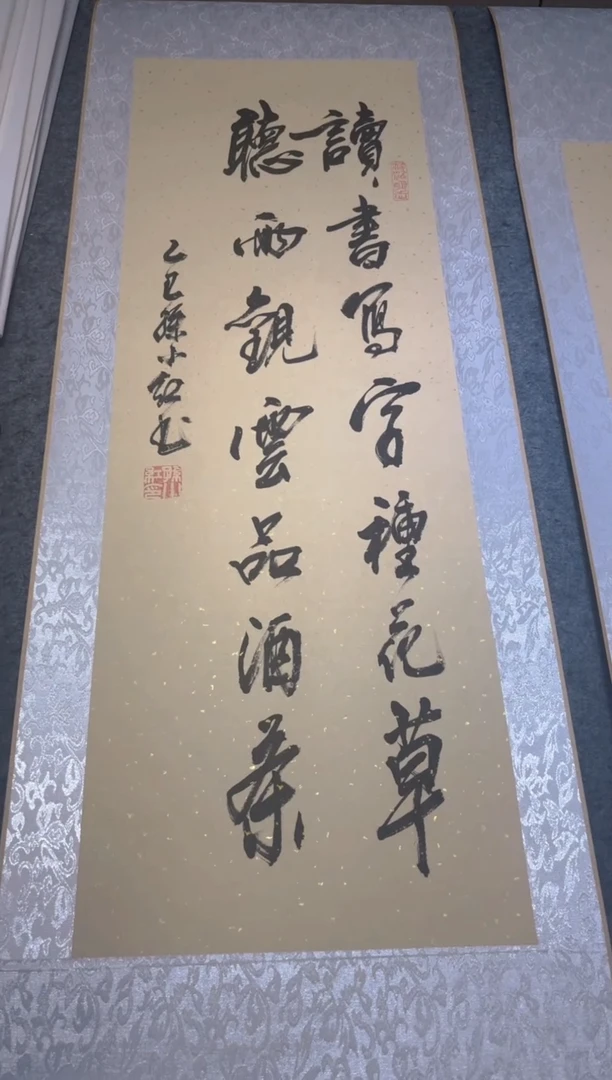 讀書寫字種花草
聽雨觀雲品酒茶
乙巳孫小紅书